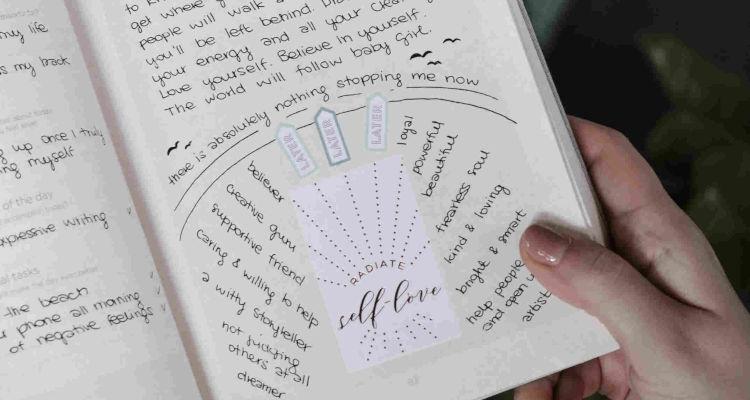 my life
s my back
up once I truly
ng myself
of the day
xpressive writing
al tasks
the beach
r phone all morning
of negative feelings
get where
people will walk
you'll be left behind.
your energy and all your
Love yourself. Believe in yourself.
The world will follow baby girl.
there is absolutely nothing stopping me now
LATER
LATER
LATER
believer
creative guru
supportive friend
caring & willing to help
a witty storyteller
not judging
others at all
dreamer
RADIATE
self-love
loyal
powerful
beautiful
fearless soul
kind & loving
bright & smart
help people
and open
artist